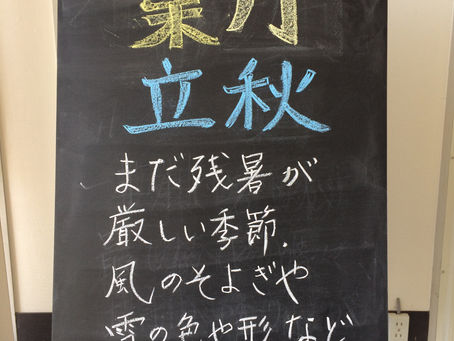 葉月
立秋
まだ残暑が
厳しい季節.
風のそよぎや
雲の色や形など